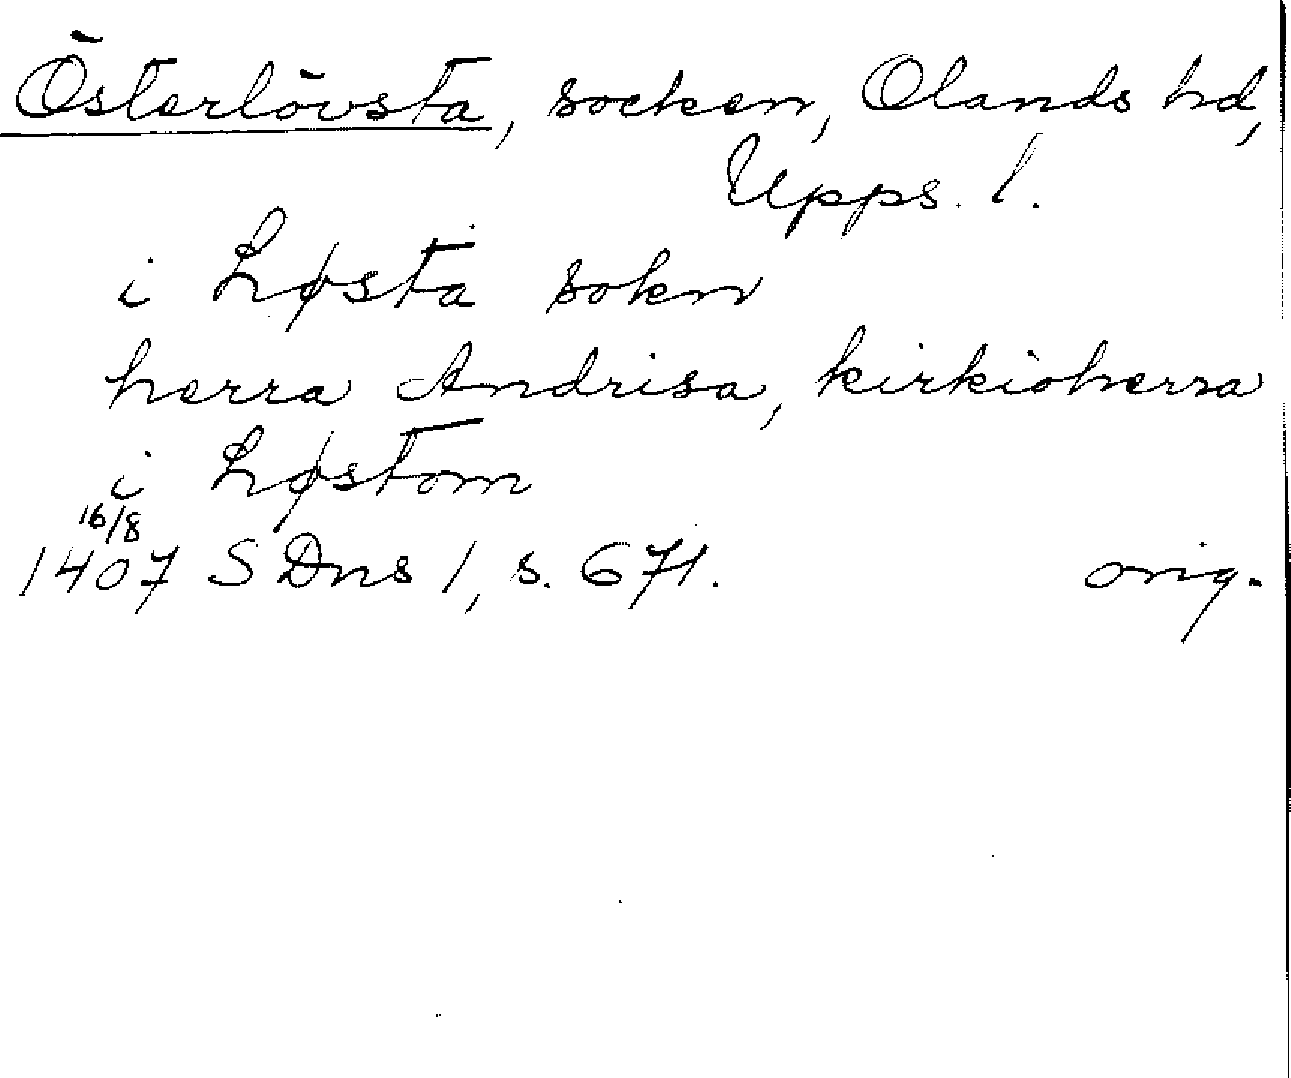 Österlövsta, socken, Olands hd,
Upps. l.
i Løsta sokn
herra Andrisa, kirkioherra
i Løstom
16/8
1407 SDns 1, s. 671. orig.